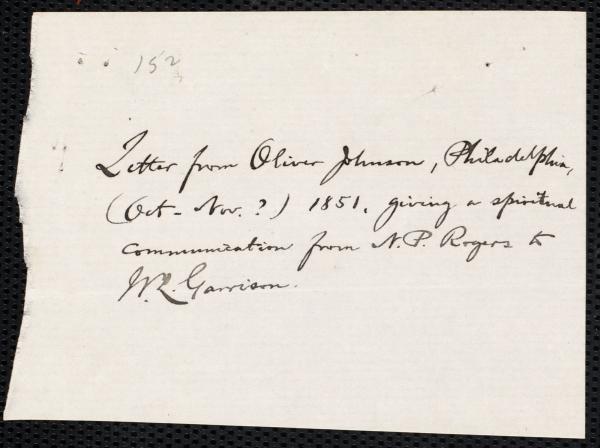 152
Letter from Oliver Johnson, Philadelphia,
(Oct - Nov. ?) 1851, giving a spiritual
communication from N. P. Rogers to
W. L. Garrison.